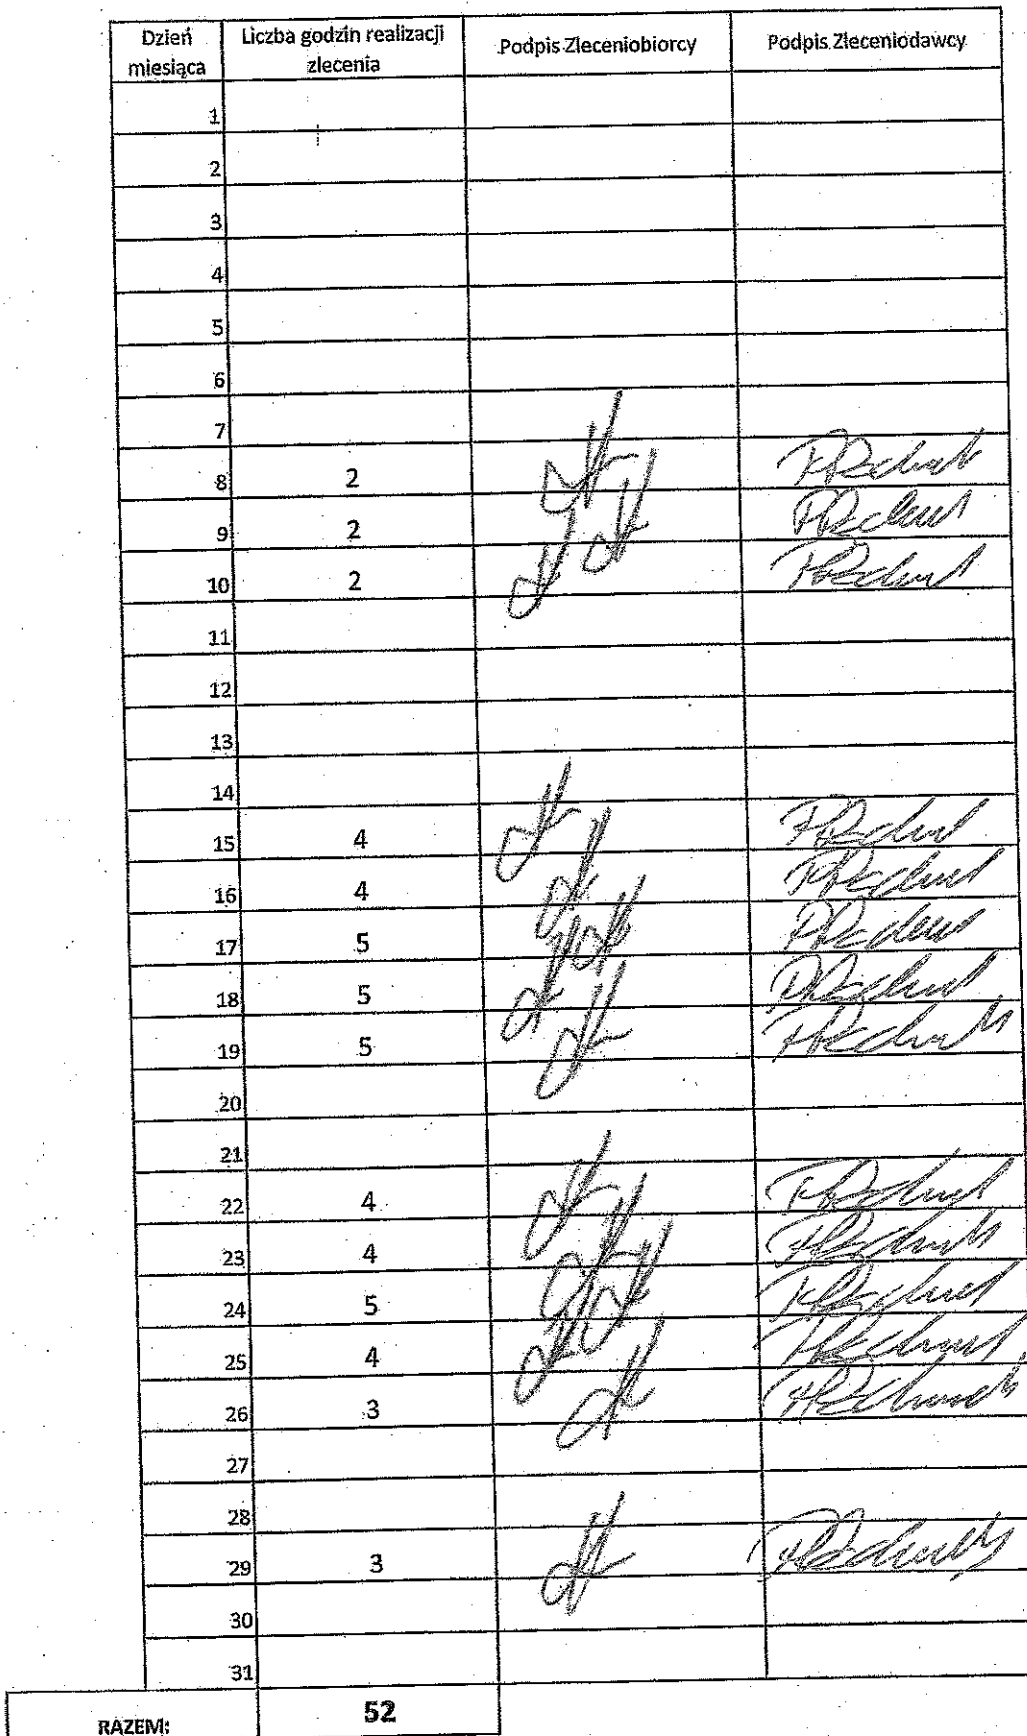 Dzień miesiąca Liczba godzin realizacji zlecenia Podpis Zleceniobiorcy Podpis Zleceniodawcy
1
2
3
4
5
6
7
8 2
9 2
10 2
11
12
13
14
15 4
16 4
17 5
18 5
19 5
20
21
22 4
23 4
24 5
25 4
26 3
27
28
29 3
30
31
RAZEM: 52